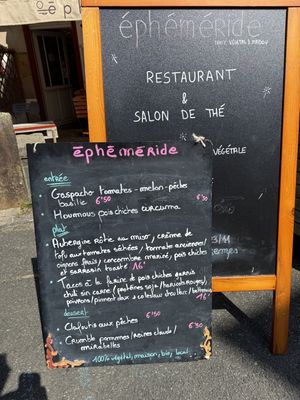 éphéméride
100% VÉGÉTAL & MAISON
RESTAURANT
&
SALON DE THÉ
VÉGÉTALE
3/11
éphéméride
entrée
Gaspacho tomates - melon - pêches
basilic 6'50
6'50
Houmous pois chiches curcuma
plat
Aubergine rôtie au miso, crème de
tofu aux tomates séchées, tomates anciennes/
oignons frais, concombre mariné, pois chiches
et sarrasin toasté 16'
Tacos à la farine de pois chiches garnis
chili sin carne (protéines soja/haricots rouges),
poivrons/piment doux & coleslaw
16'
dessert
Clafoutis aux pêches 6'50
Crumble pommes/reines claude/
mirabelles
6'50
100% végétal, maison, bio, local